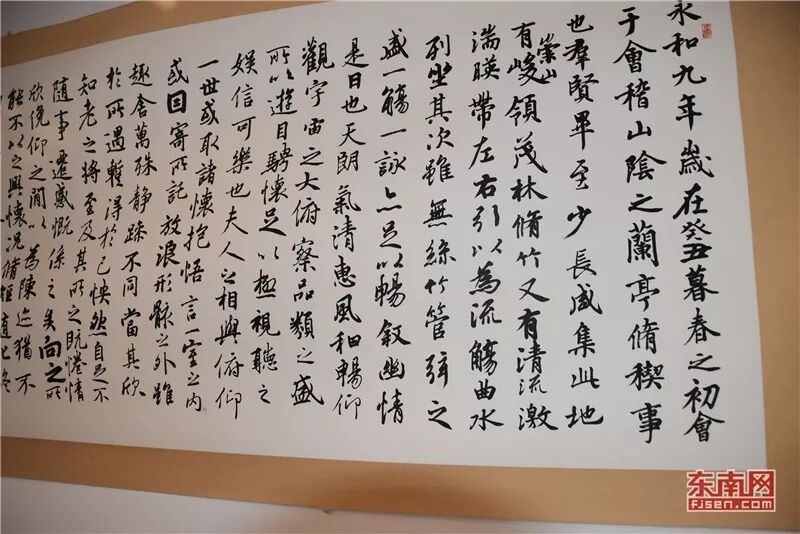 永和九年歲在癸丑暮春之初會
于會稽山陰之蘭亭脩稧事
也羣賢畢至少長咸集此地
有崇山峻領茂林脩竹又有清流激
湍暎帶左右引以為流觴曲水
列坐其次雖無絲竹管弦之
盛一觴一詠亦足以暢敘幽情
是日也天朗氣清惠風和暢仰
觀宇宙之大俯察品類之盛
所以遊目騁懷足以極視聽之
娛信可樂也夫人之相與俯仰
一世或取諸懷抱悟言一室之內
或因寄所託放浪形骸之外雖
趣舍萬殊静躁不同當其欣
於所遇蹔得於己怏然自足不
知老之將至及其所之既惓情
隨事遷感慨係之矣向之所
欣俛仰之間以為陳迹猶不
能不以之興懷況脩短隨化終
东南网
FJSEN.COM